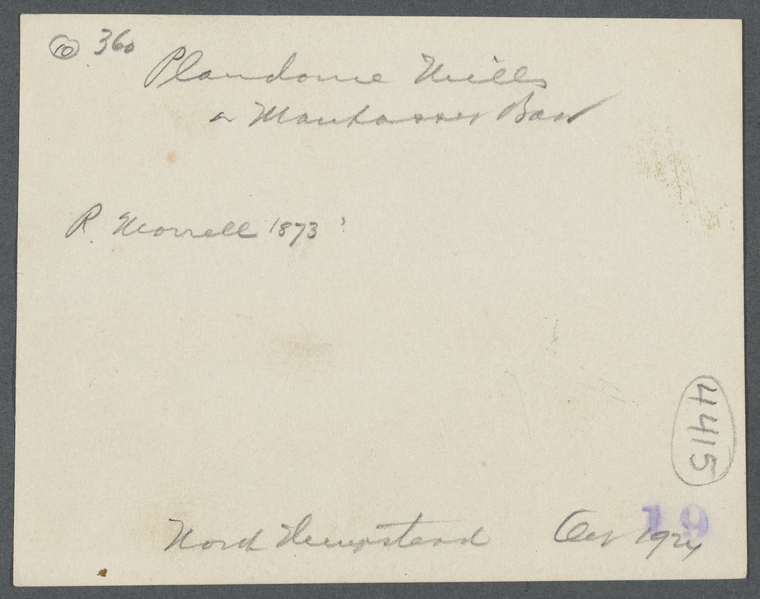 10 360
Plandome Mills
on Manhasset Bay
R. Morrell 1873 ?
4415
19
North Hempstead Oct 1924